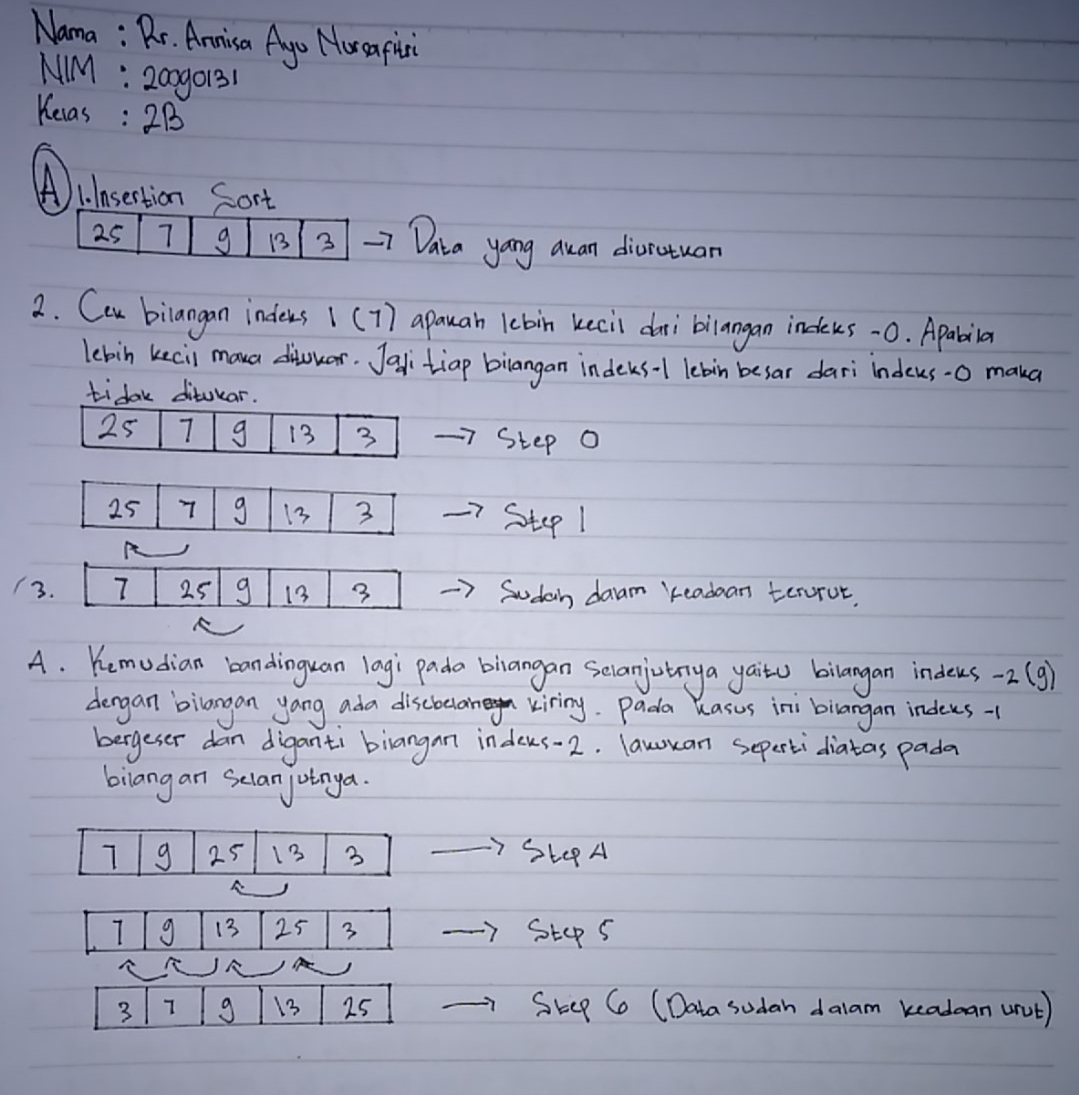 Nama : Rr. Annisa Ayu Nursafitri
NIM : 20090131
Kelas : 2B
A 1. Insertion Sort
25 7 9 13 3 → Data yang akan diurutkan
2. Cek bilangan indeks 1 (7) apakah lebih kecil dari bilangan indeks -0. Apabila
lebih kecil maka ditukar. Jadi tiap bilangan indeks-1 lebih besar dari indeks-0 maka
tidak ditukar.
25 7 9 13 3 → Step 0
25 7 9 13 3 → Step 1
3. 7 25 9 13 3 → Sudah dalam keadaan terurut.
4. Kemudian bandingkan lagi pada bilangan selanjutnya yaitu bilangan indeks -2 (9)
dengan bilangan yang ada disebelah kiriny. Pada kasus ini bilangan indeks -1
bergeser dan diganti bilangan indeks-2. lakukan seperti diatas pada
bilangan selanjutnya.
7 9 25 13 3 → Step 4
7 9 13 25 3 → Step 5
3 7 9 13 25 → Step 6 (Data sudah dalam keadaan urut)